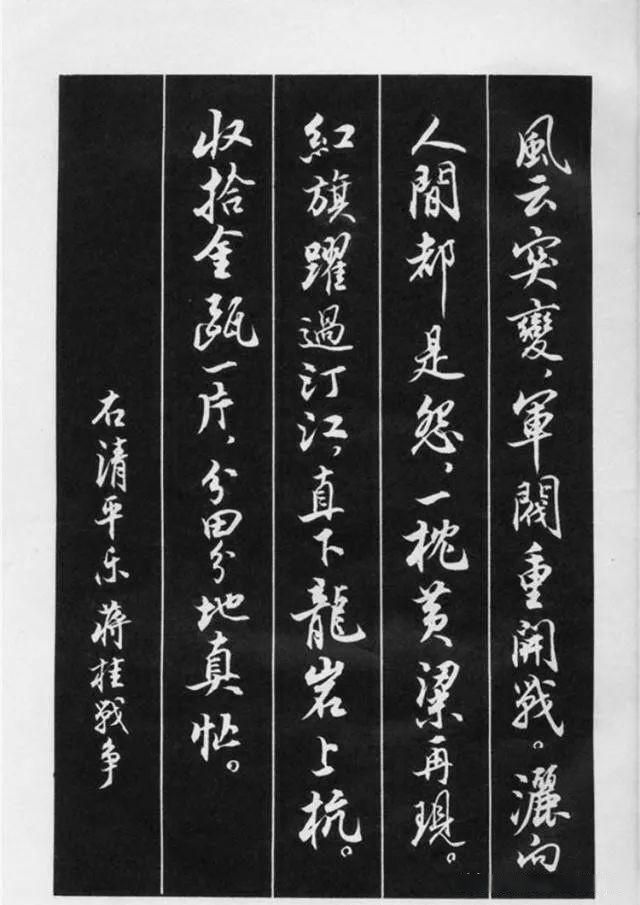 風云突變，軍閥重開战。灑向
人間都是怨，一枕黄梁再現。
紅旗躍過汀江，直下龍岩上杭。
收拾金甌一片，分田分地真忙。
右清平乐 蔣桂战争